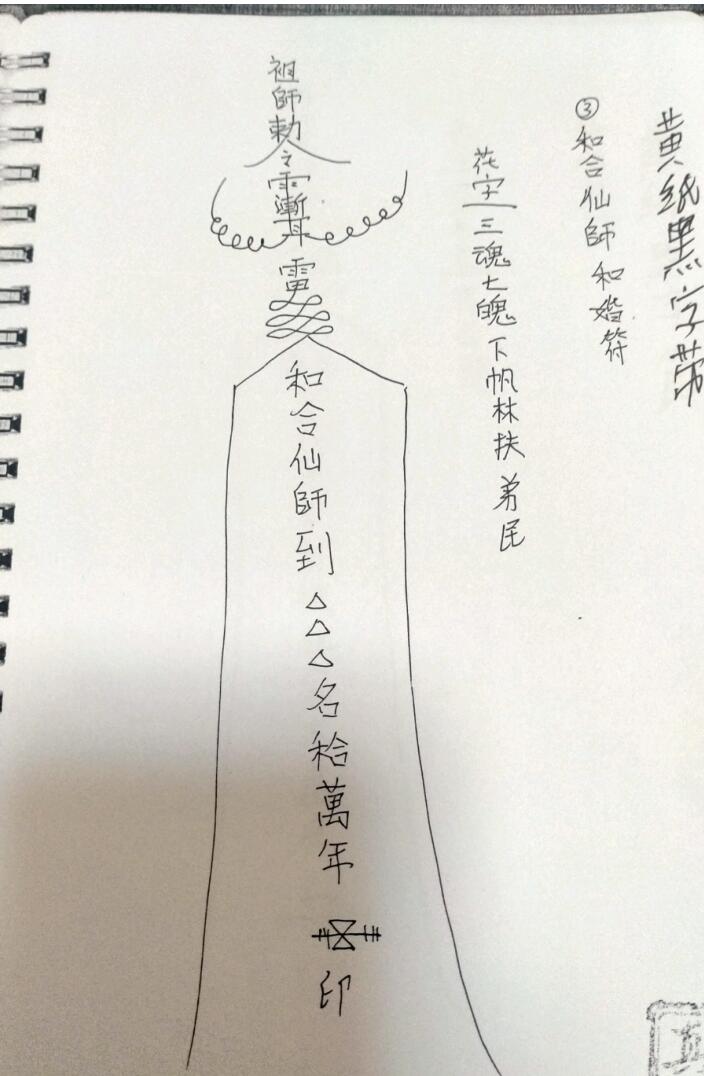 黄纸黑字带
③和合仙師和婚符
花字三魂七魄下帆林扶弟民
祖師勅
令
雷
和合仙師到△△△名袷萬年
印